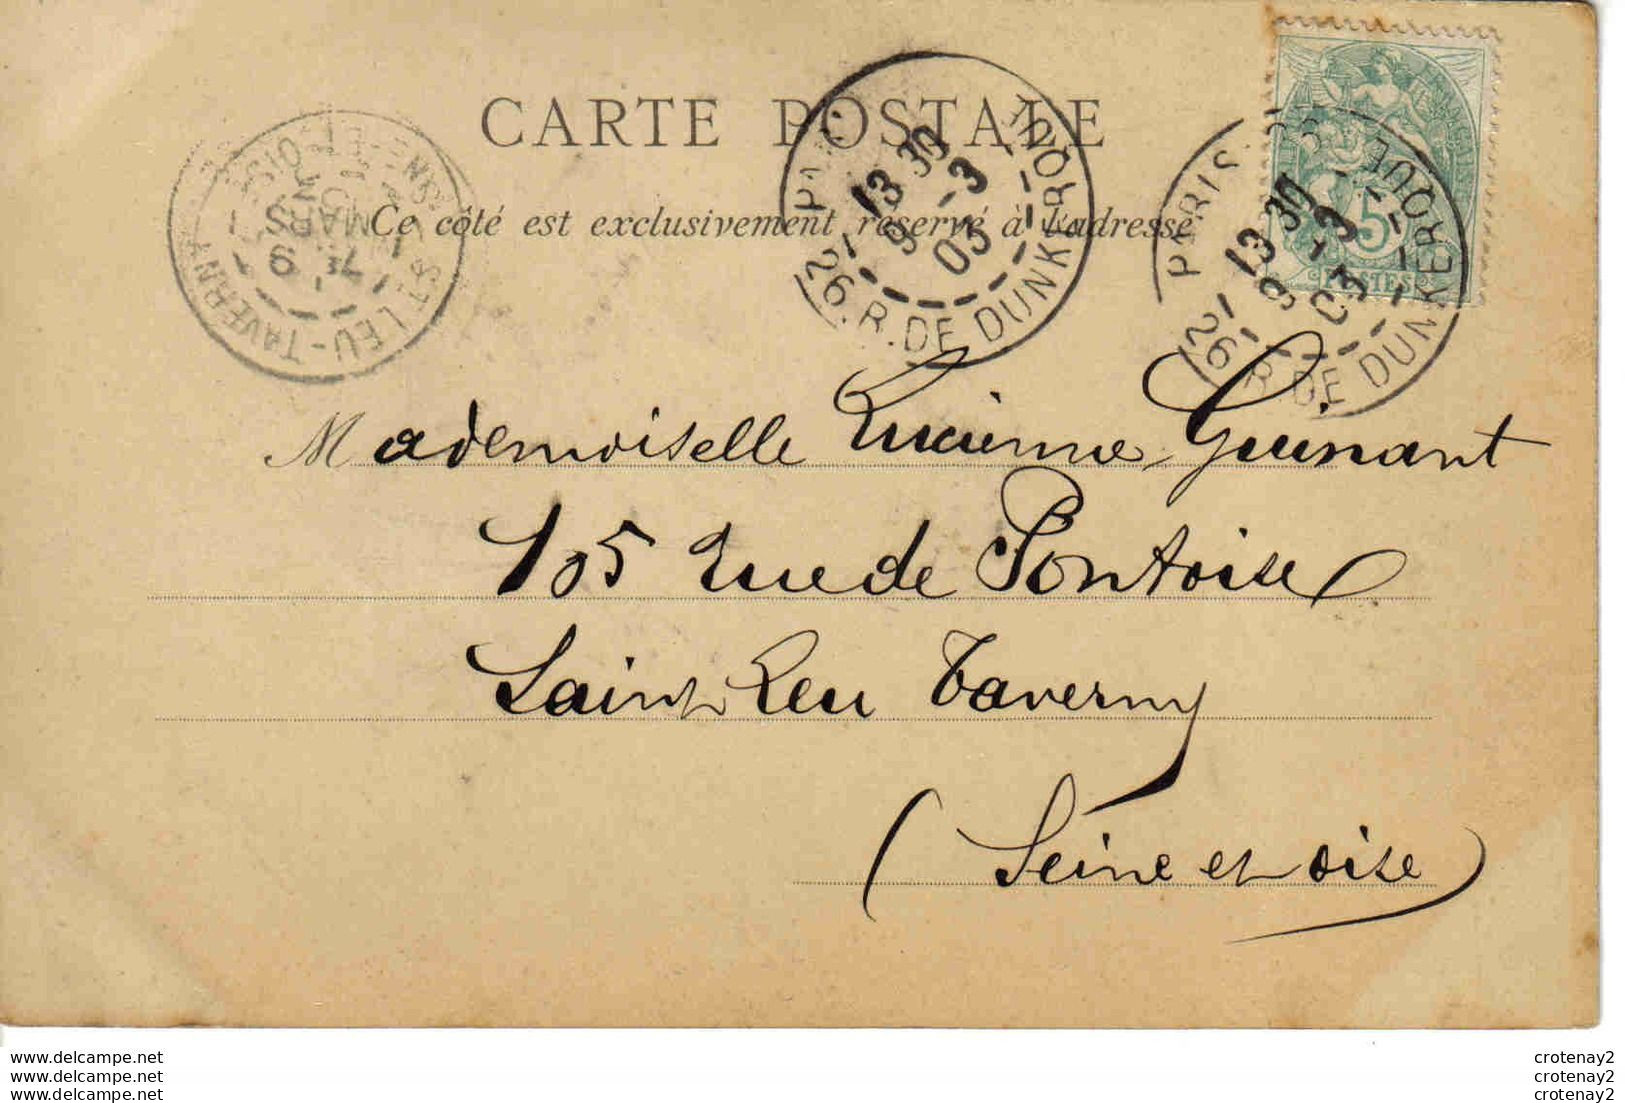 CARTE POSTALE
Ce côté est exclusivement réservé à l'adresse
PARIS
13 30
9 - 3
03
26. R. DE DUNKERQUE
PARIS
13 30
9 - 3
03
26 R. DE DUNKERQUE
5
POSTES
ST LEU-TAVERNY
7E 9
MARS
03
Mademoiselle Lucienne Guinant
105 rue de Pontoise
Saint Leu Taverny
(Seine et Oise)
www.delcampe.net
www.delcampe.net
www.delcampe.net
crotenay2
crotenay2
crotenay2